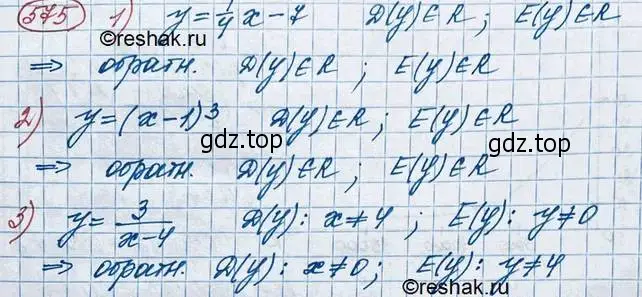 575 1) y = 1/4 x - 7 D(y) ∈ R ; E(y) ∈ R
©reshak.ru
⇒ обратн. D(y) ∈ R ; E(y) ∈ R
2) y = (x - 1)³ D(y) ∈ R ; E(y) ∈ R
gdz.top gdz.top
⇒ обратн. D(y) ∈ R ; E(y) ∈ R
3) y = 3/(x - 4) D(y) : x ≠ 4 ; E(y) : y ≠ 0
⇒ обратн. D(y) : x ≠ 0 ; E(y) : y ≠ 4
©reshak.ru